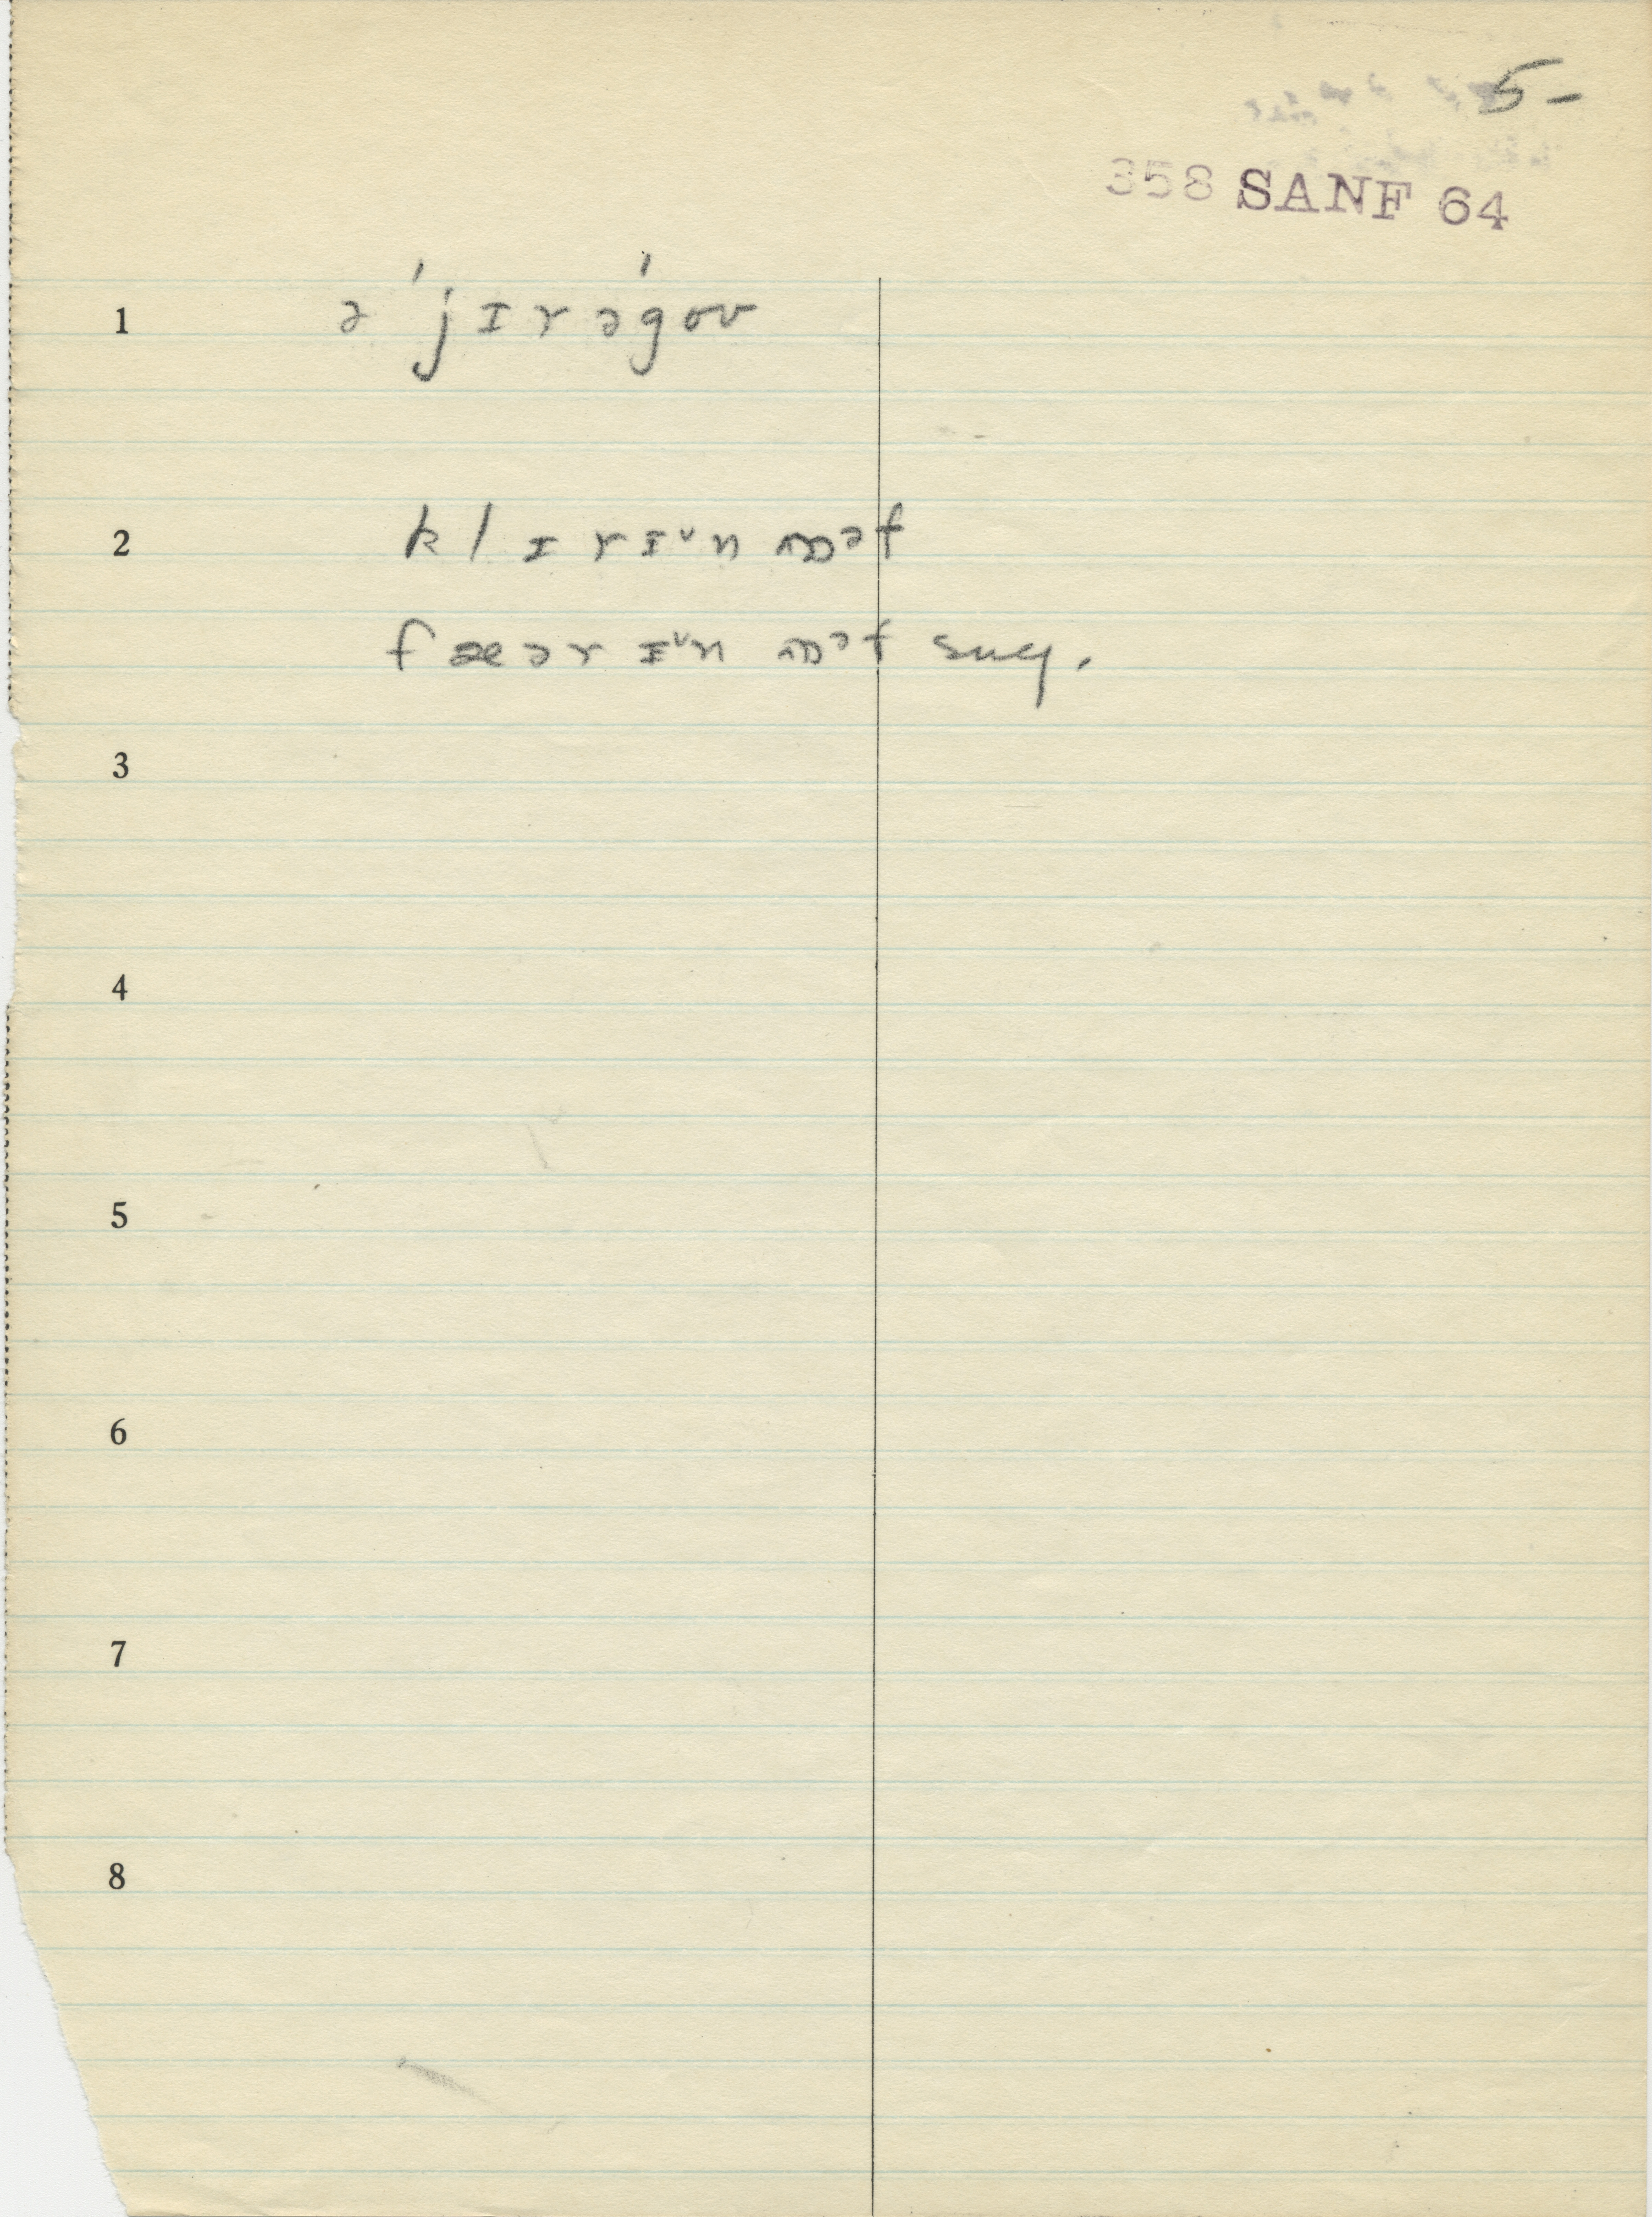 5-
358 SANF 64
1 ə ˈjɪrəˈgoʊ
2 klɪrɪ˅n ɒᵊf
fæər ɪ˅n ɒᵊf sug.
3
4
5
6
7
8